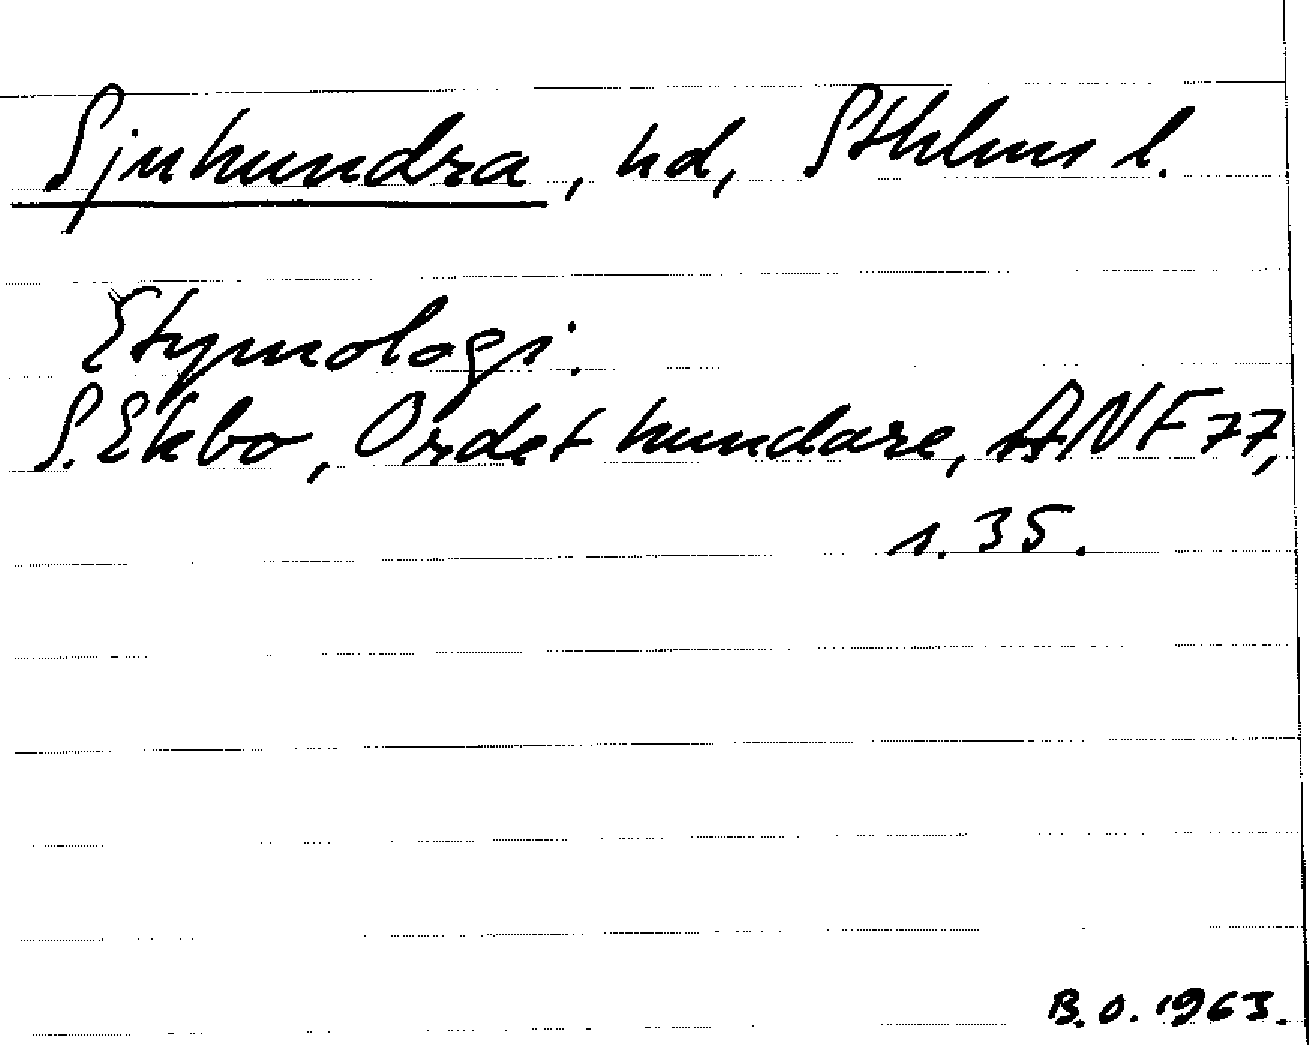 Sjuhundra, hd, Sthlms l.
Etymologi.
S. Ekbo, Ordet hundare, ANF 77,
s. 35.
B. O. 1963.